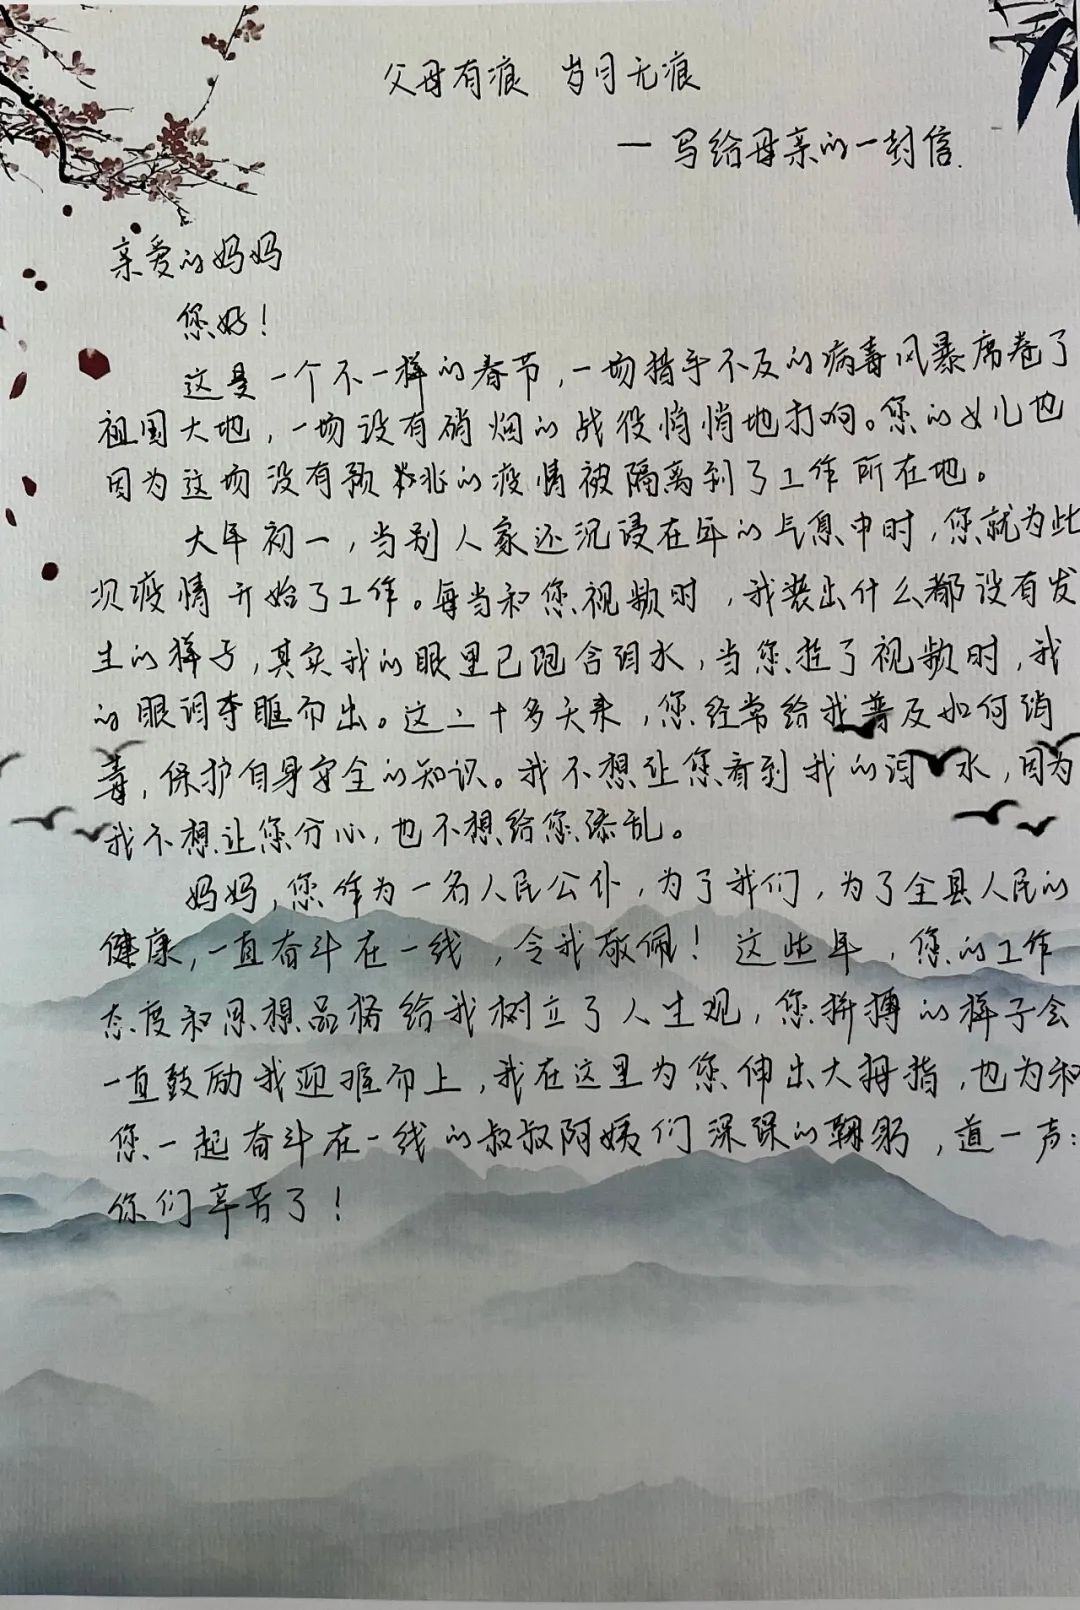 父母有痕 岁月无痕
— 写给母亲的一封信.
亲爱的妈妈
您好！
这是一个不一样的春节，一场措手不及的病毒风暴席卷了
祖国大地，一场没有硝烟的战役悄悄地打响。您的女儿也
因为这场没有预兆的疫情被隔离到了工作所在地。
大年初一，当别人家还沉浸在年的气息中时，您就为此
次疫情开始了工作。每当和您视频时，我装出什么都没有发
生的样子，其实我的眼里已饱含泪水，当您挂了视频时，我
的眼泪夺眶而出。这二十多天来，您经常给我普及如何消
毒，保护自身安全的知识。我不想让您看到我的泪水，因为
我不想让您分心，也不想给您添乱。
妈妈，您作为一名人民公仆，为了我们，为了全县人民的
健康，一直奋斗在一线，令我敬佩！这些年，您的工作
态度和思想品格给我树立了人生观，您拼搏的样子会
一直鼓励我迎难而上，我在这里为您伸出大拇指，也为和
您一起奋斗在一线的叔叔阿姨们深深的鞠躬，道一声：
你们辛苦了！